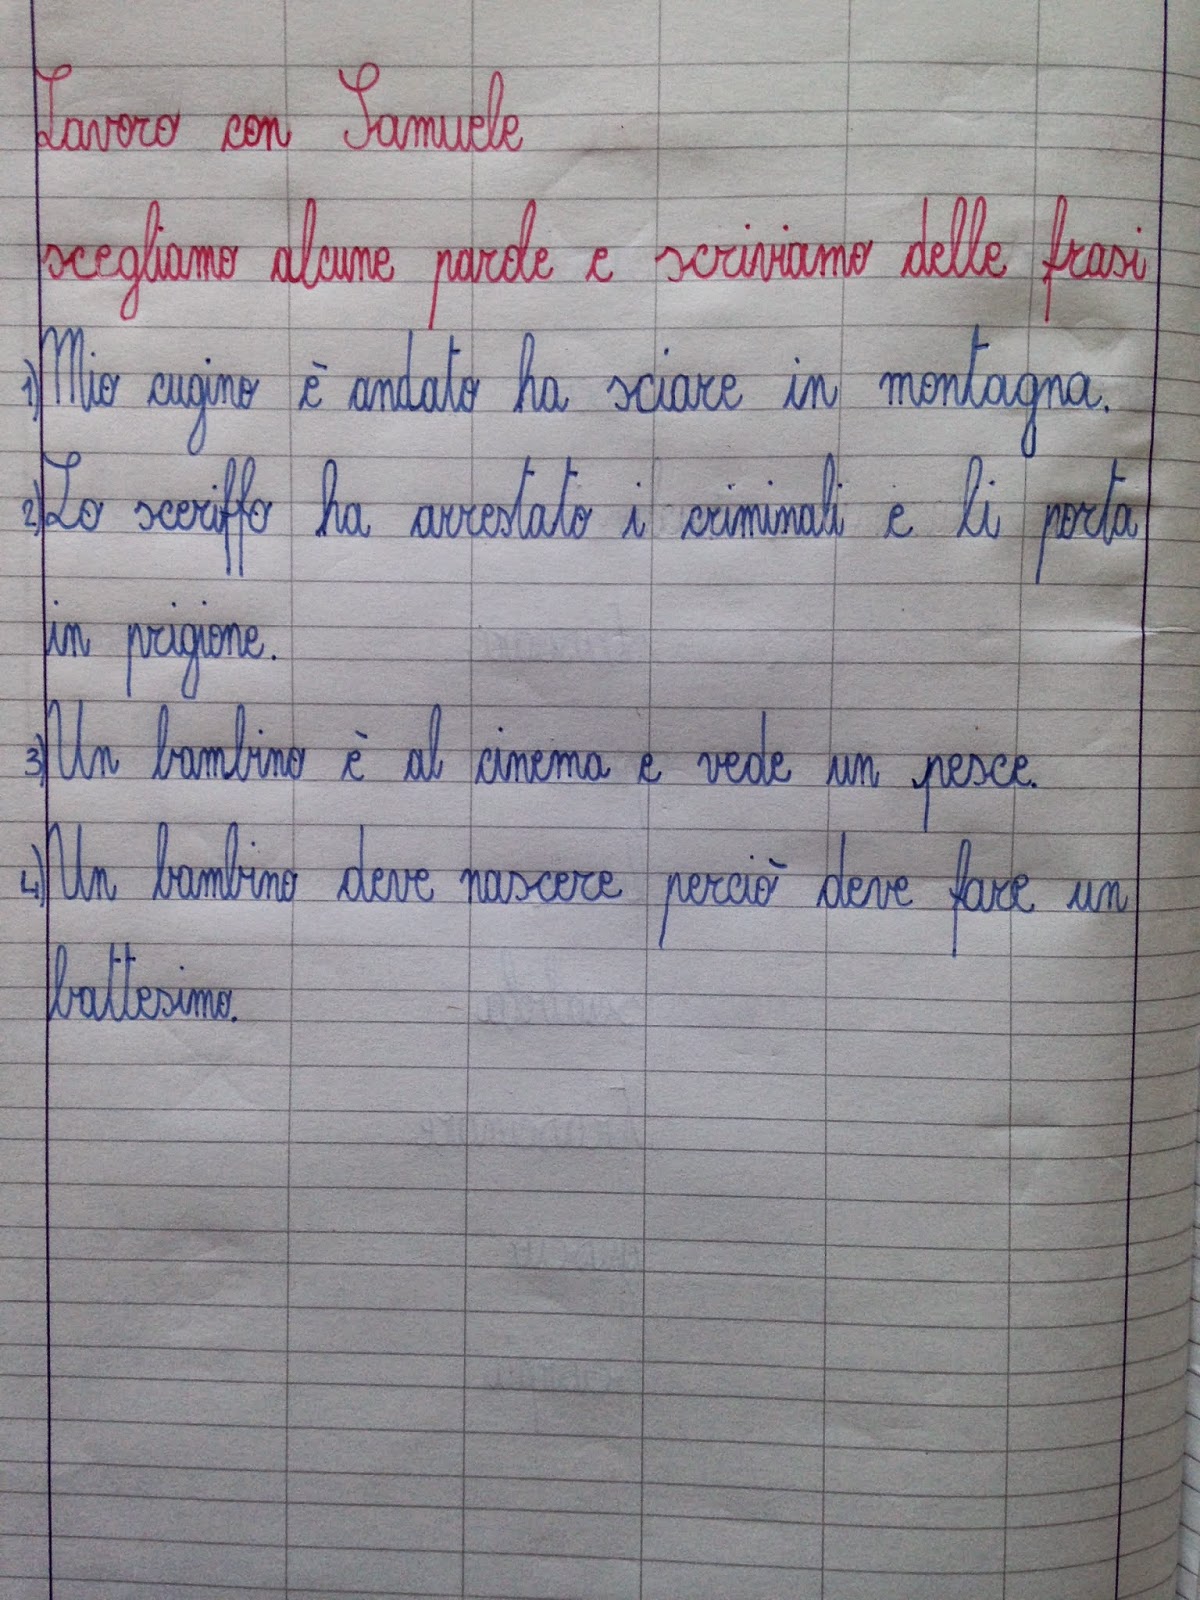 Lavoro con Samuele
scegliamo alcune parole e scriviamo delle frasi
1) Mio cugino è andato ha sciare in montagna.
2) Lo sceriffo ha arrestato i criminali e li porta
in prigione.
3) Un bambino è al cinema e vede un pesce.
4) Un bambino deve nascere perciò deve fare un
battesimo.